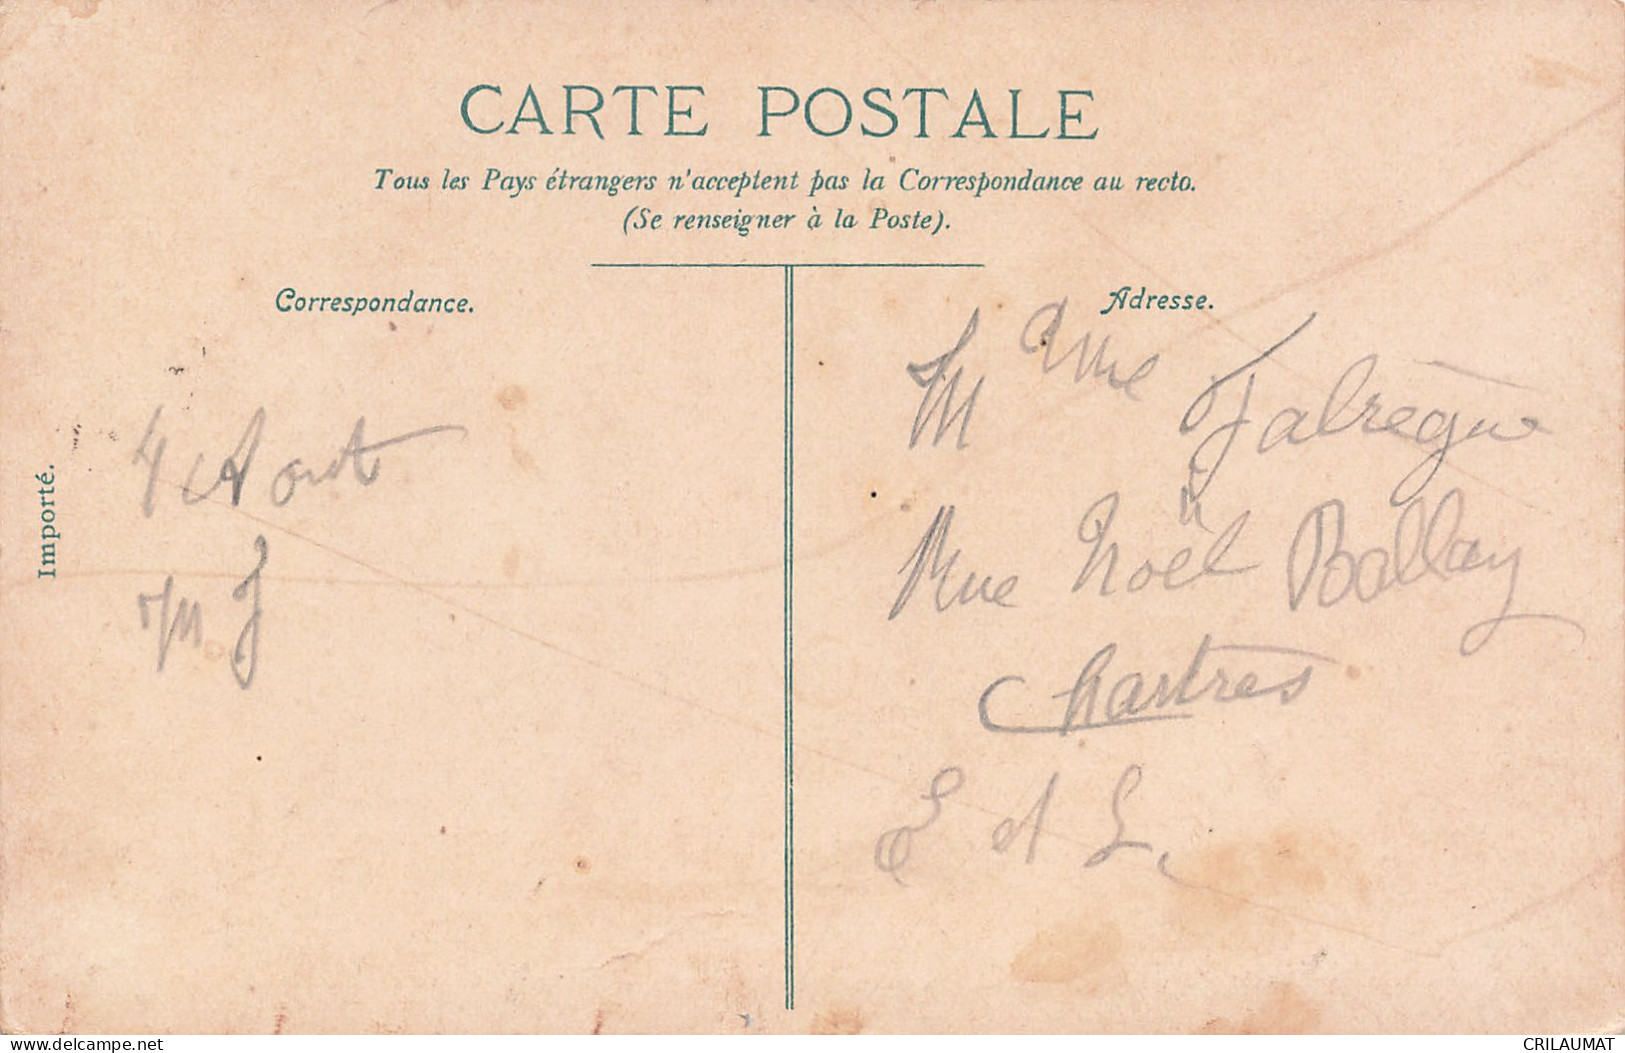 CARTE POSTALE
Tous les Pays étrangers n'acceptent pas la Correspondance au recto.
(Se renseigner à la Poste).
Correspondance.
Adresse.
Importé.
4 Aout
Mame Fabrègue
Rue Noël Ballay
Chartres
E et L.
www.delcampe.net
CRILAUMAT